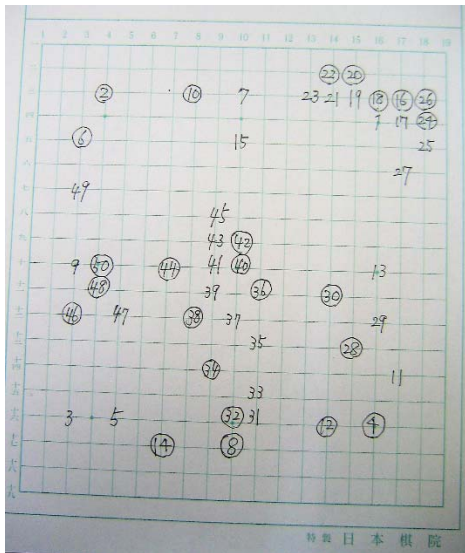 1 2 3 4 5 6 7 8 9 10 11 12 13 14 15 16 17 18 19
22 20
2 10 7 23 21 19 18 16 26
1 17 24
6 15 25
27
49
45
43 42
9 50 44 41 40 13
48 39 36 30
46 47 38 37 29
35 28
34 11
33
3 5 32 31 12 4
14 8
特製 日本棋院